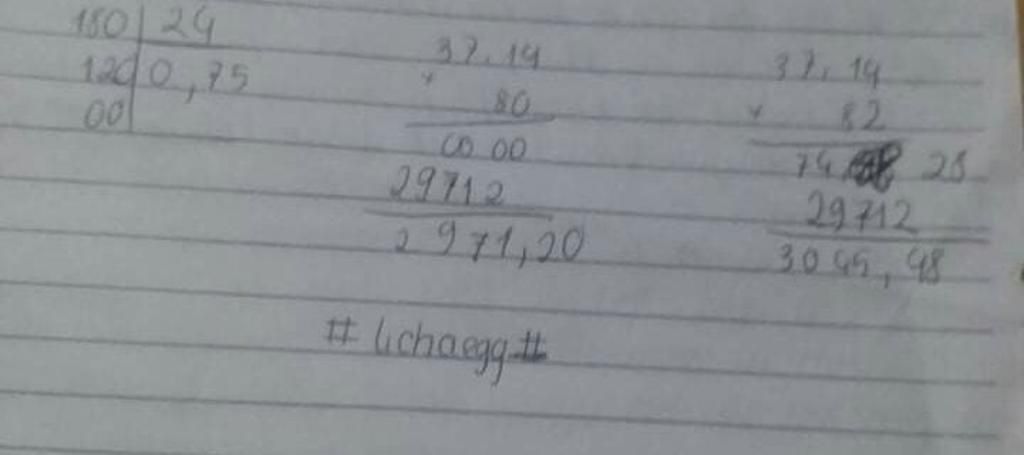 180 | 24
120 | 0,75
00
37.14
× 80
0000
29712
2971,20
37,14
× 82
74 28
29712
3045,48
# lichaegg #